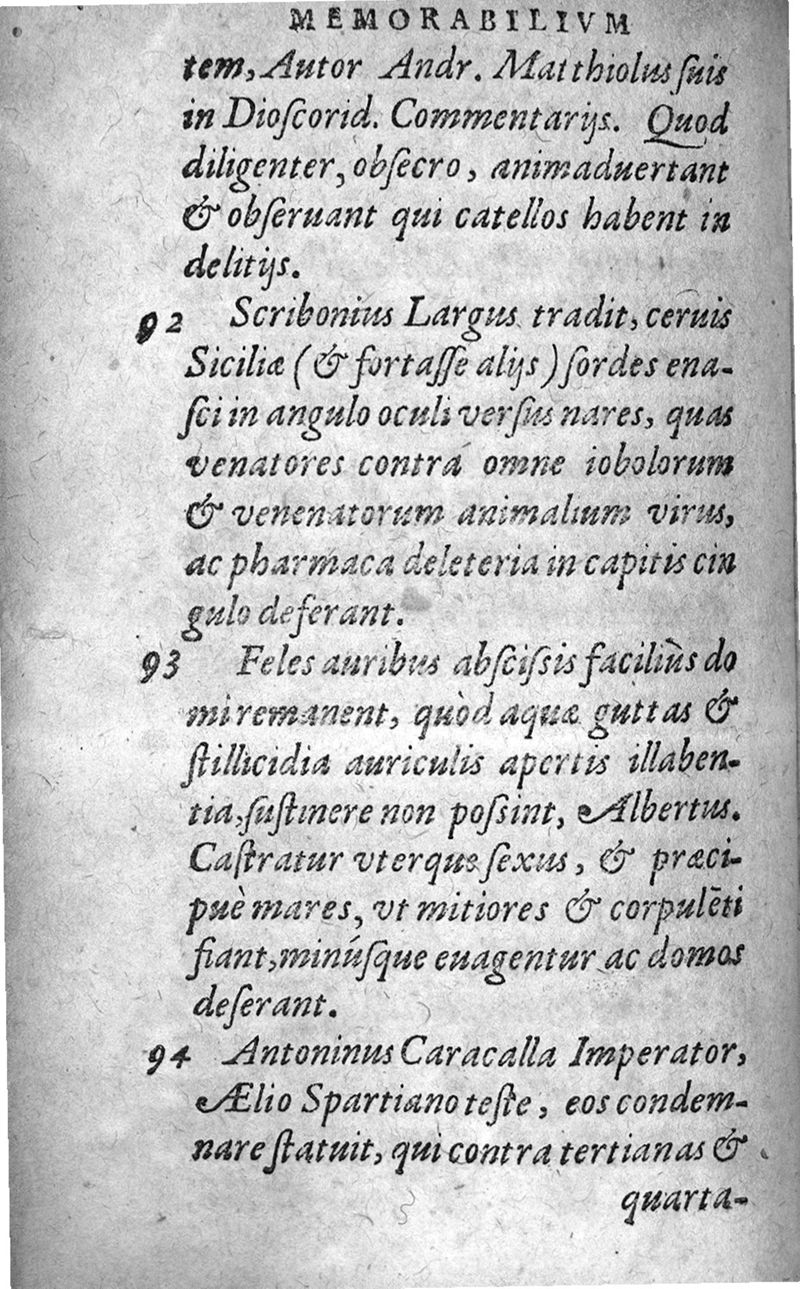 MEMORABILIVM
tem, Autor Andr. Matthiolus ſuis
in Dioſcorid. Commentarijs. Quod
diligenter, obſecro, animaduertant
& obſeruant qui catellos habent in
delitijs.
92 Scribonius Largus tradit, ceruis
Siciliæ (& fortaſſe alijs) ſordes ena-
ſci in angulo oculi verſus nares, quas
venatores contrà omne iobolorum
& venenatorum animalium virus,
ac pharmaca deleteria in capitis cin
gulo deferant.
93 Feles auribus abſciſsis faciliùs do
mi remanent, quòd aquæ guttas &
ſtillicidia auriculis apertis illaben-
tia, ſuſtinere non poſsint, Albertus.
Caſtratur vterque ſexus, & præci-
puè mares, vt mitiores & corpulēti
fiant, minúſque euagentur ac domos
deſerant.
94 Antoninus Caracalla Imperator,
Ælio Spartiano teſte, eos condem-
nare ſtatuit, qui contra tertianas &
quarta-